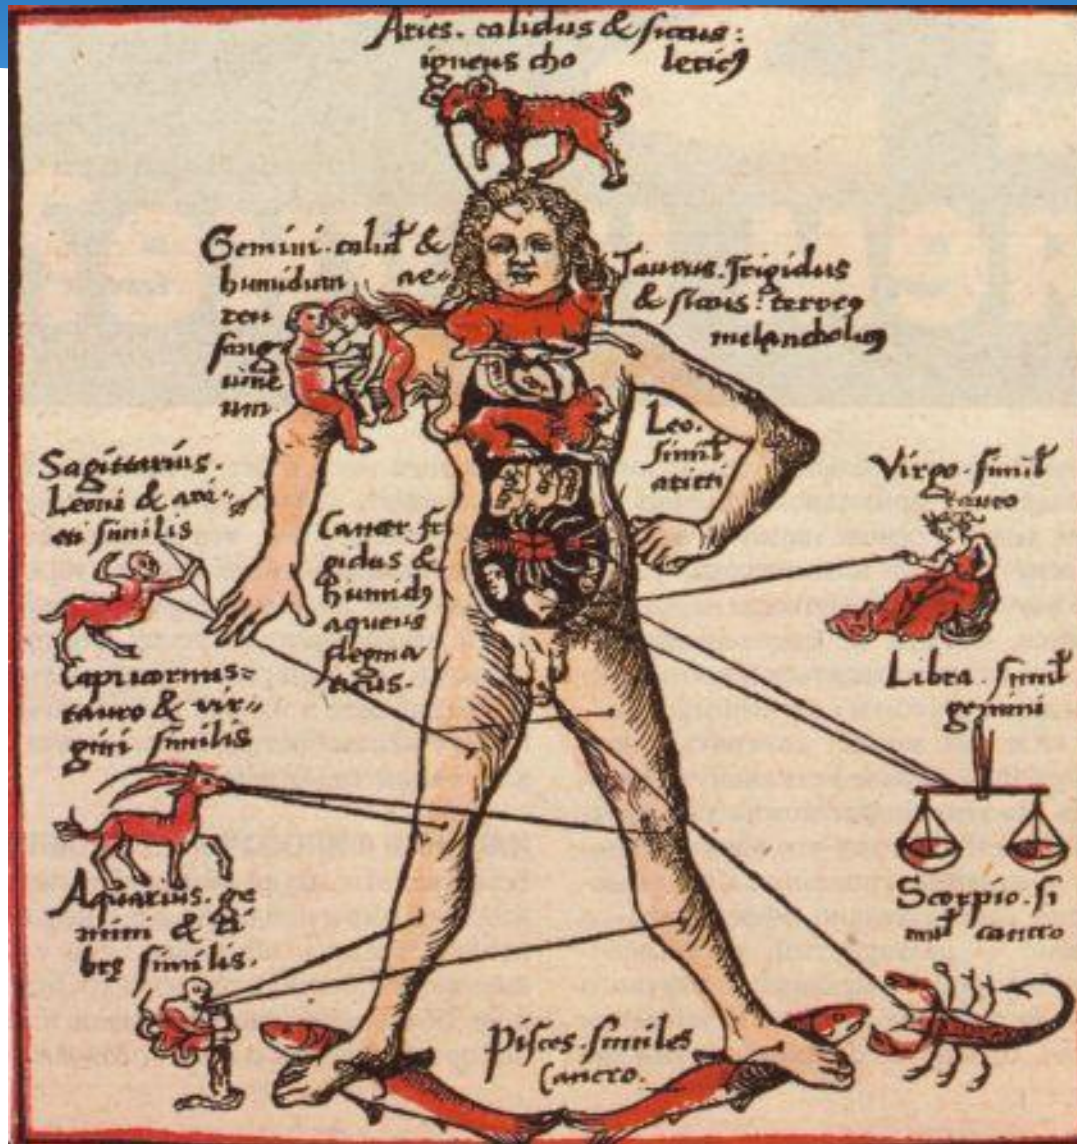 Aries. calidus & siccus:
igneus cho lericꝰ
Gemini. calid &
humidum ae-
reu
sang
uine
um
Taurus. Frigidus
& siccus: terreꝰ
melancholicꝰ
Leo.
simil
arieti
Sagittarius.
Leoni & ari-
eti similis
Cancer fri
gidus &
humidꝰ
aqueus
flegma
ticus.
Virgo. simil
tauro
Capricornus-
tauro & vir-
gini similis
Libra. simil
gemini
Aquarius. ge
mini & li
brę similis.
Scorpio. si
mil cancro
Pisces. similes
Cancro.